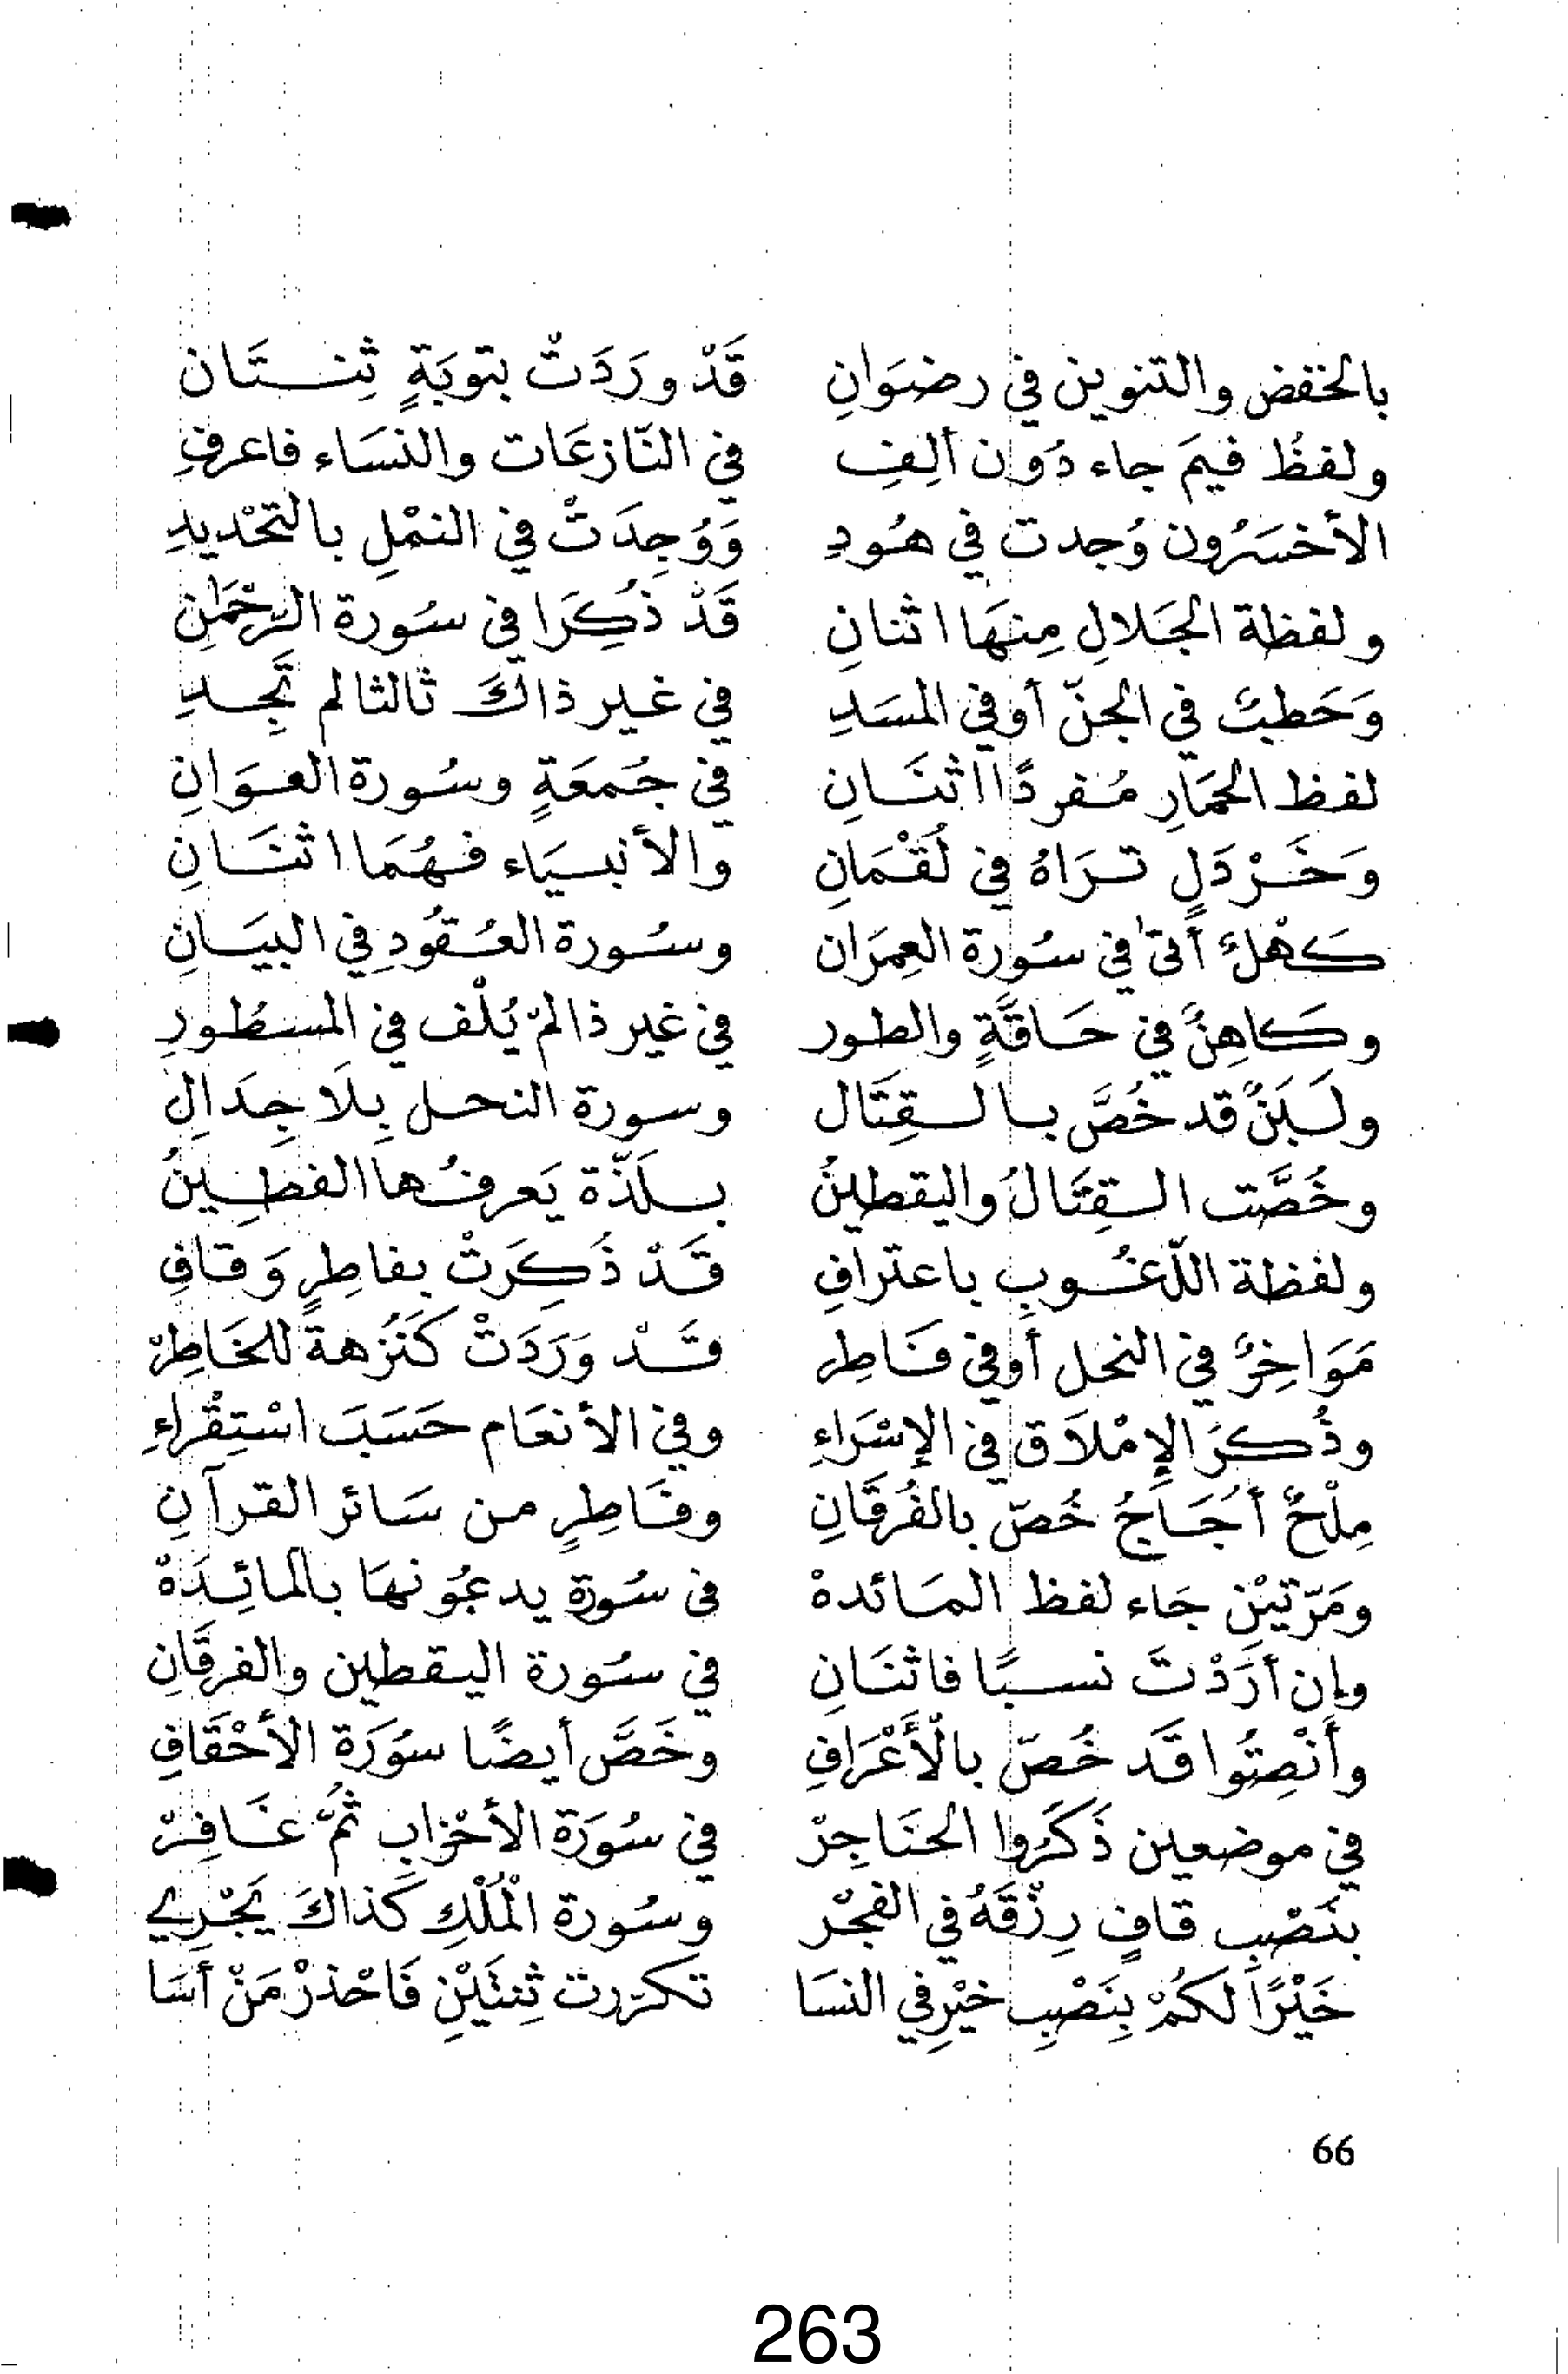 بالخفض والتنوين في رضوَانِ قَدْ ورَدَتْ بتوبَةٍ ثِنتَان
ولفظُ فيمَ جاء دُون ألِفِ في النّازعَات والنسَاء فاعرفِ
الأخسَرُون وُجدت في هُودِ وَوُجِدَتْ في النمْلِ بالتحْديدِ
ولفظة الجَلالِ مِنهَا اثنانِ قَدْ ذُكِرَا في سُورة الرّحْمَٰنِ
وَحَطبٌ في الجنّ أو في المسَدِ في غير ذاكَ ثالثا لم تَجِدِ
لفظ الحمَارِ مُفردًا اثنَانِ في جُمعَةٍ وسُورة العوَانِ
وَخَرْدَلٍ ترَاهُ في لُقْمَانِ والأنبيَاء فهُمَا اثنَانِ
كَهْلاً أتىٰ في سُورة العِمرَان وسُورة العُقُودِ في البيَانِ
وكَاهِنٌ في حَاقَّةٍ والطور في غير ذا لمْ يُلْف في المسطُورِ
ولَبَنٌ قد خُصَّ بالقِتَال وسورة النحل بِلَا جِدَالِ
وخُصَّت القِتَالُ واليقطينُ بلَذّة يَعرفُها الفطِينُ
ولفظة اللّغُوبِ باعترافِ قَدْ ذُكِرَتْ بفاطِرٍ وَقافِ
مَوَاخِرٌ في النحل أو في فَاطِر قَدْ وَرَدَتْ كَنُزهة للخَاطِرْ
وذُكرَ الإمْلاَق في الإسْرَاءِ وفي الأنعَام حَسَبَ اسْتِقْراءِ
مِلْحٌ أُجَاجٌ خُصّ بالفُرقَانِ وفَاطِرٍ من سَائر القرآنِ
ومَرّتيْن جَاء لفظ المَائدهْ في سُورة يدعُونهَا بالمائِدَهْ
وإن أرَدْتَ نسبًا فاثنَانِ في سُورة اليقطين والفرقَانِ
وأَنْصِتُوا قَد خُصّ بالْأَعْرَافِ وخَصَّ أيضًا سُورَة الأحْقَافِ
في موضعين ذَكَرُوا الحنَاجِرْ في سُورَة الأحْزابِ ثُمَّ غَافِرْ
بنَصْبِ قافٍ رِزْقَهُ في الفجْر وسُورة الْمُلْكِ كذاكَ يَجْرِي
خَيْرًا لَكُمْ بِنَصْبِ خيْرِ في النسَا تكرّرت ثِنتَيْنِ فَاحْذرْ مَنْ أَسَا
66
263